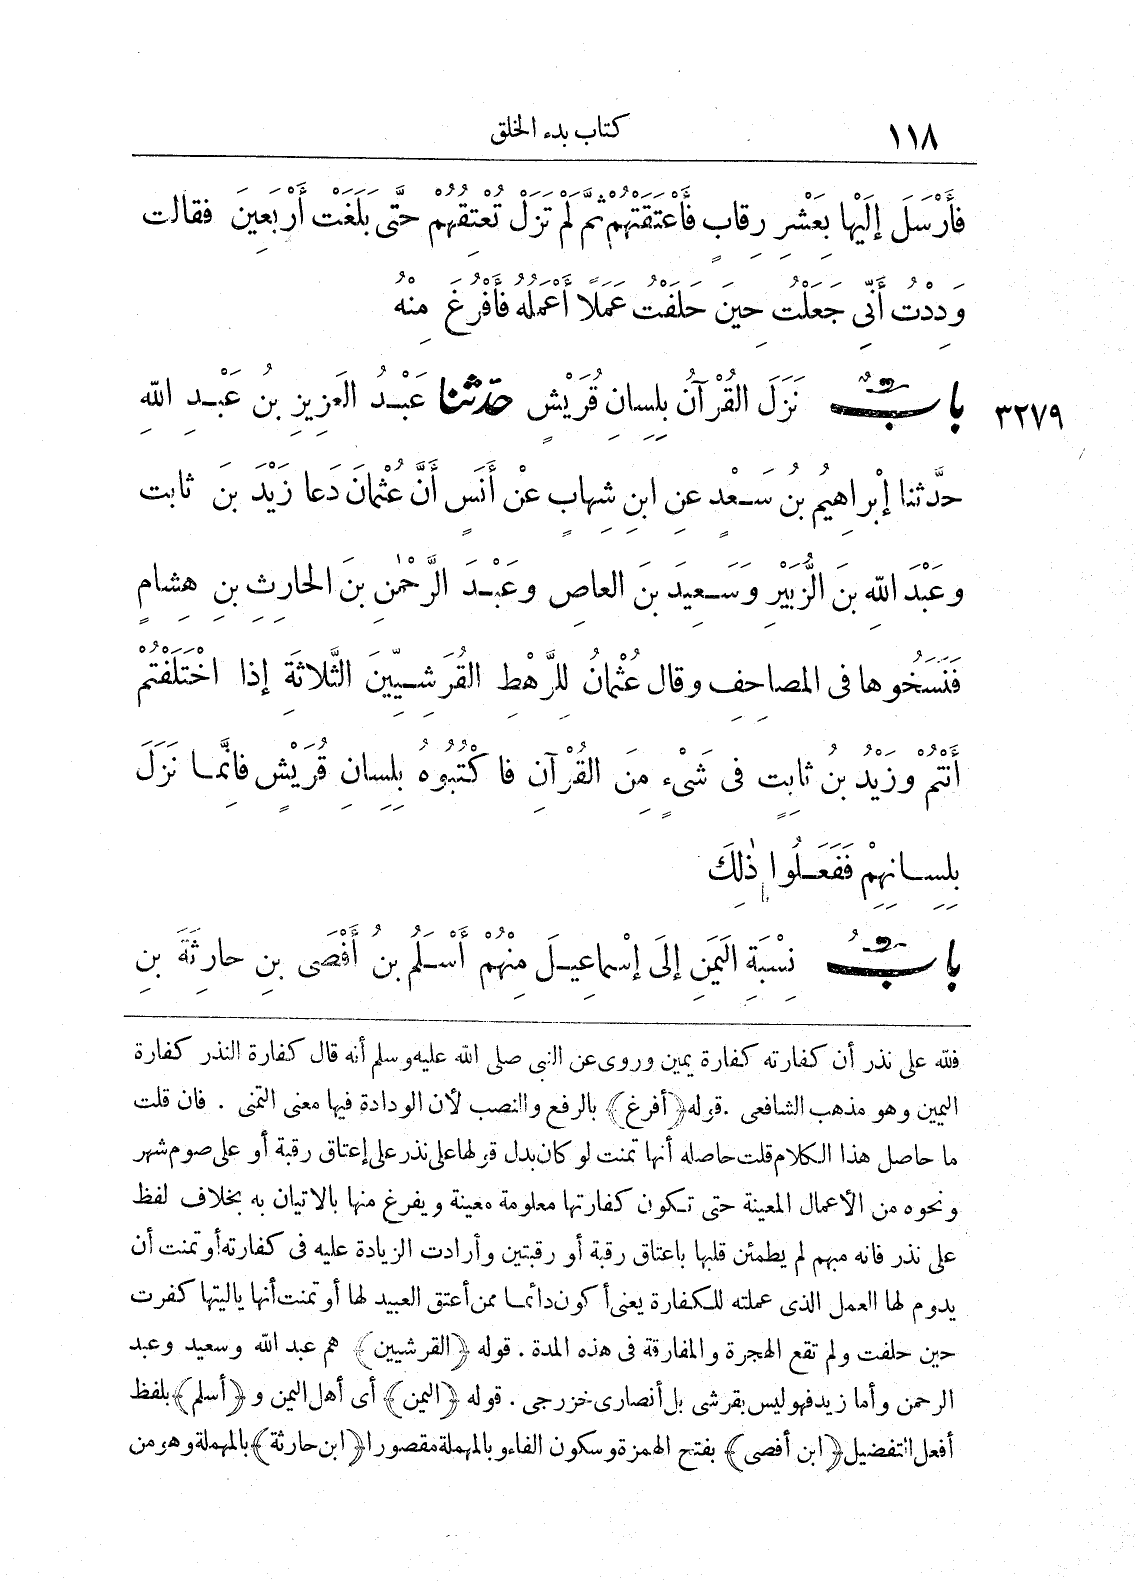 ١١٨ كتاب بدء الخلق
فَأَرْسَلَ إِلَيْهَا بِعَشْرِ رِقَابٍ فَأَعْتَقَتْهُمْ ثُمَّ لَمْ تَزَلْ تُعْتِقُهُمْ حَتَّى بَلَغَتْ أَرْبَعِينَ فقالت
وَدِدْتُ أَنِّي جَعَلْتُ حِينَ حَلَفْتُ عَمَلًا أَعْمَلُهُ فَأَفْرُغَ مِنْهُ
٣٢٧٩ بابٌ نَزَلَ القُرْآنُ بِلِسانِ قُرَيْشٍ حدّثنا عَبْدُ العَزِيزِ بنُ عَبْدِ اللّٰهِ
حدَّثنا إِبْراهِيمُ بنُ سَعْدٍ عنِ ابنِ شِهابٍ عنْ أَنَسٍ أنَّ عُثْمانَ دَعا زَيْدَ بنَ ثابت
وعَبْدَ اللّٰهِ بنَ الزُّبَيْرِ وسَعِيدَ بنَ العاصِ وعَبْدَ الرَّحْمٰنِ بنَ الحارِثِ بنِ هشامٍ
فَنَسَخُوها فى المصاحِفِ وقال عُثْمانُ لِلرَّهْطِ القُرَشِيِّينَ الثَّلاثَةِ إذا اخْتَلَفْتُمْ
أَنْتُمْ وزَيْدُ بنُ ثابِتٍ فى شَىْءٍ مِنَ القُرْآنِ فاكْتُبُوهُ بِلِسانِ قُرَيْشٍ فانَّما نَزَلَ
بِلِسانِهِمْ فَفَعَلُوا ذٰلِكَ
بابُ نِسْبَةِ اليَمَنِ إلَى إسْماعِيلَ مِنْهُمْ أَسْلَمُ بنُ أَفْصَى بنِ حارِثَةَ بنِ
فلله على نذر أن كفارته كفارة يمين وروى عن النبى صلى الله عليه وسلم أنه قال كفارة النذر كفارة
اليمين وهو مذهب الشافعى . قوله ﴿أفرغ﴾ بالرفع والنصب لأن الودادة فيها معنى التمنى . فان قلت
ما حاصل هذا الكلام قلت حاصله أنها تمنت لو كان بدل قولها على نذر على إعتاق رقبة أو على صوم شهر
ونحوه من الأعمال المعينة حتى تكون كفارتها معلومة معينة ويفرغ منها بالاتيان به بخلاف لفظ
على نذر فانه مبهم لم يطمئن قلبها باعتاق رقبة أو رقبتين وأرادت الزيادة عليه فى كفارته أو تمنت أن
يدوم لها العمل الذى عملته للكفارة يعنى أكون دائما ممن أعتق العبيد لها أو تمنت أنها ياليتها كفرت
حين حلفت ولم تقع الهجرة والمفارقة فى هذه المدة . قوله ﴿القرشيين﴾ هم عبد الله وسعيد وعبد
الرحمن وأما زيد فهو ليس بقرشى بل أنصارى خزرجى . قوله ﴿اليمن﴾ أى أهل اليمن و ﴿أسلم﴾ بلفظ
أفعل التفضيل ﴿ابن أفصى﴾ بفتح الهمزة وسكون الفاء وبالمهملة مقصورا ﴿ابن حارثة﴾ بالمهملة وهو من